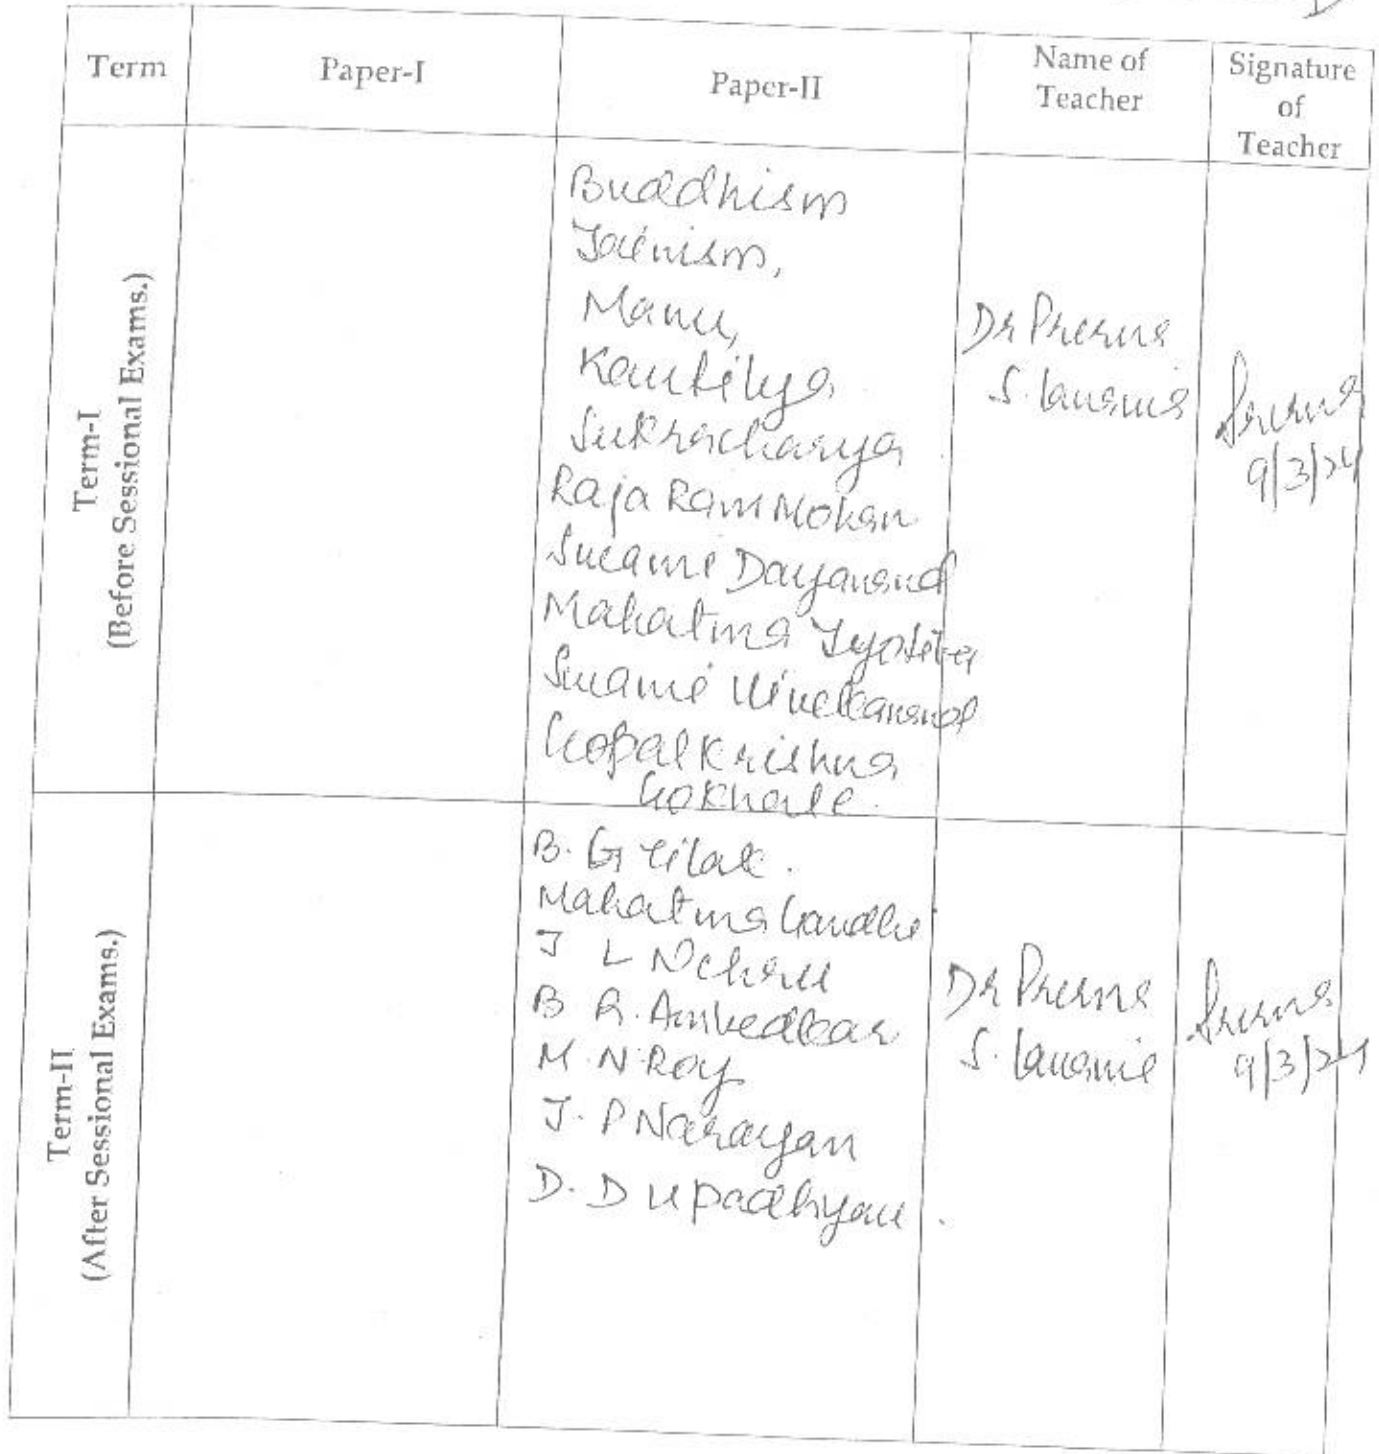 Term
Paper-I
Paper-II
Name of
Teacher
Signature
of
Teacher
Term-I
(Before Sessional Exams.)
Buddhism
Jainism,
Manu,
Kautilya
Sukracharya
Raja Ram Mohan
Swami Dayanand
Mahatma Jyotiba
Swami Vivekanand
Gopal Krishna
Gokhale.
Dr Prerna
S.
Prerna
9/3/24
Term-II
(After Sessional Exams.)
B. G Tilak.
Mahatma Gandhi
J L Nehru
B R. Ambedkar
M. N. Roy
J. P Narayan
D. D Upadhyay.
Dr Prerna
S.
Prerna
9/3/24